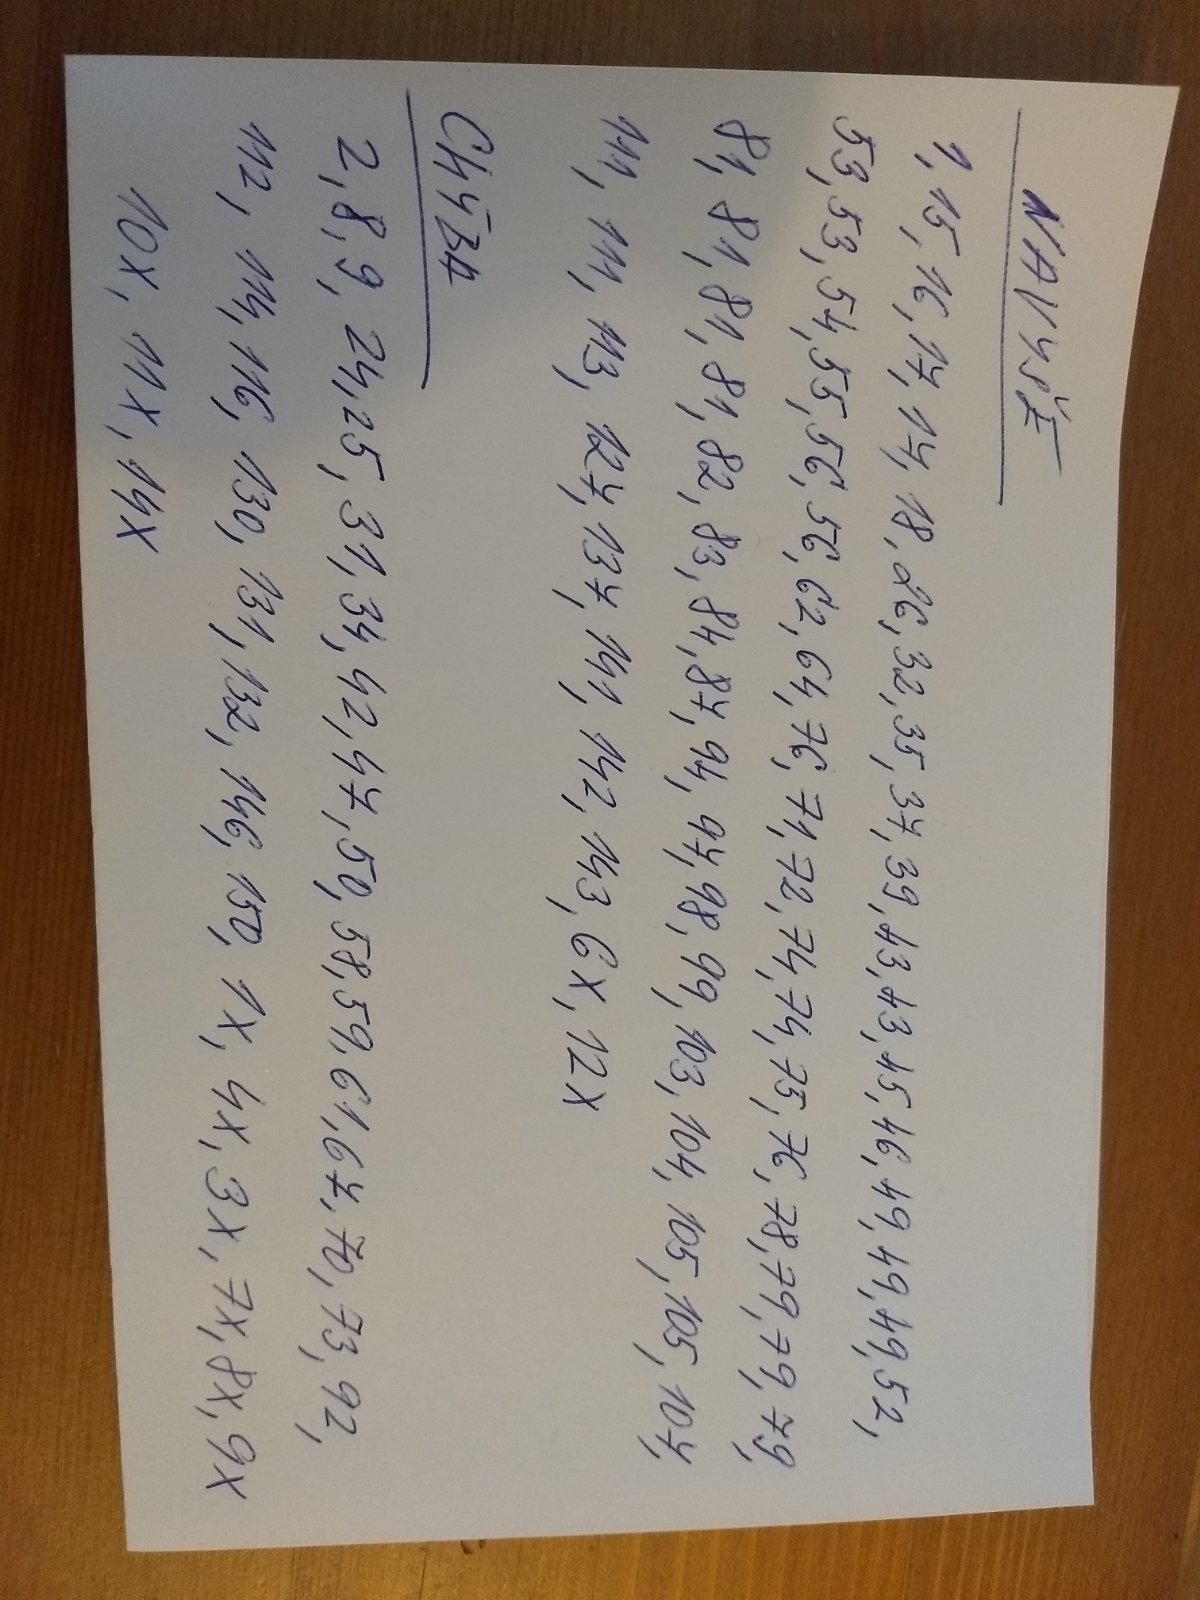 NAVYŠE
1, 15, 16, 17, 17, 18, 26, 32, 35, 37, 39, 43, 43, 45, 46, 49, 49, 49, 52,
53, 53, 54, 55, 56, 56, 62, 64, 76, 71, 72, 74, 74, 75, 76, 78, 79, 79, 79
81, 81, 81, 81, 82, 83, 84, 87, 94, 97, 98, 99, 103, 104, 105, 105, 107,
111, 111, 113, 127, 137, 141, 142, 143, 6X, 12X
CHÝBA
2, 8, 9, 24, 25, 31, 34, 42, 47, 50, 58, 59, 61, 67, 70, 73, 92,
112, 114, 116, 130, 131, 132, 146, 150, 1X, 4X, 3X, 7X, 8X, 9X
10X, 11X, 14X